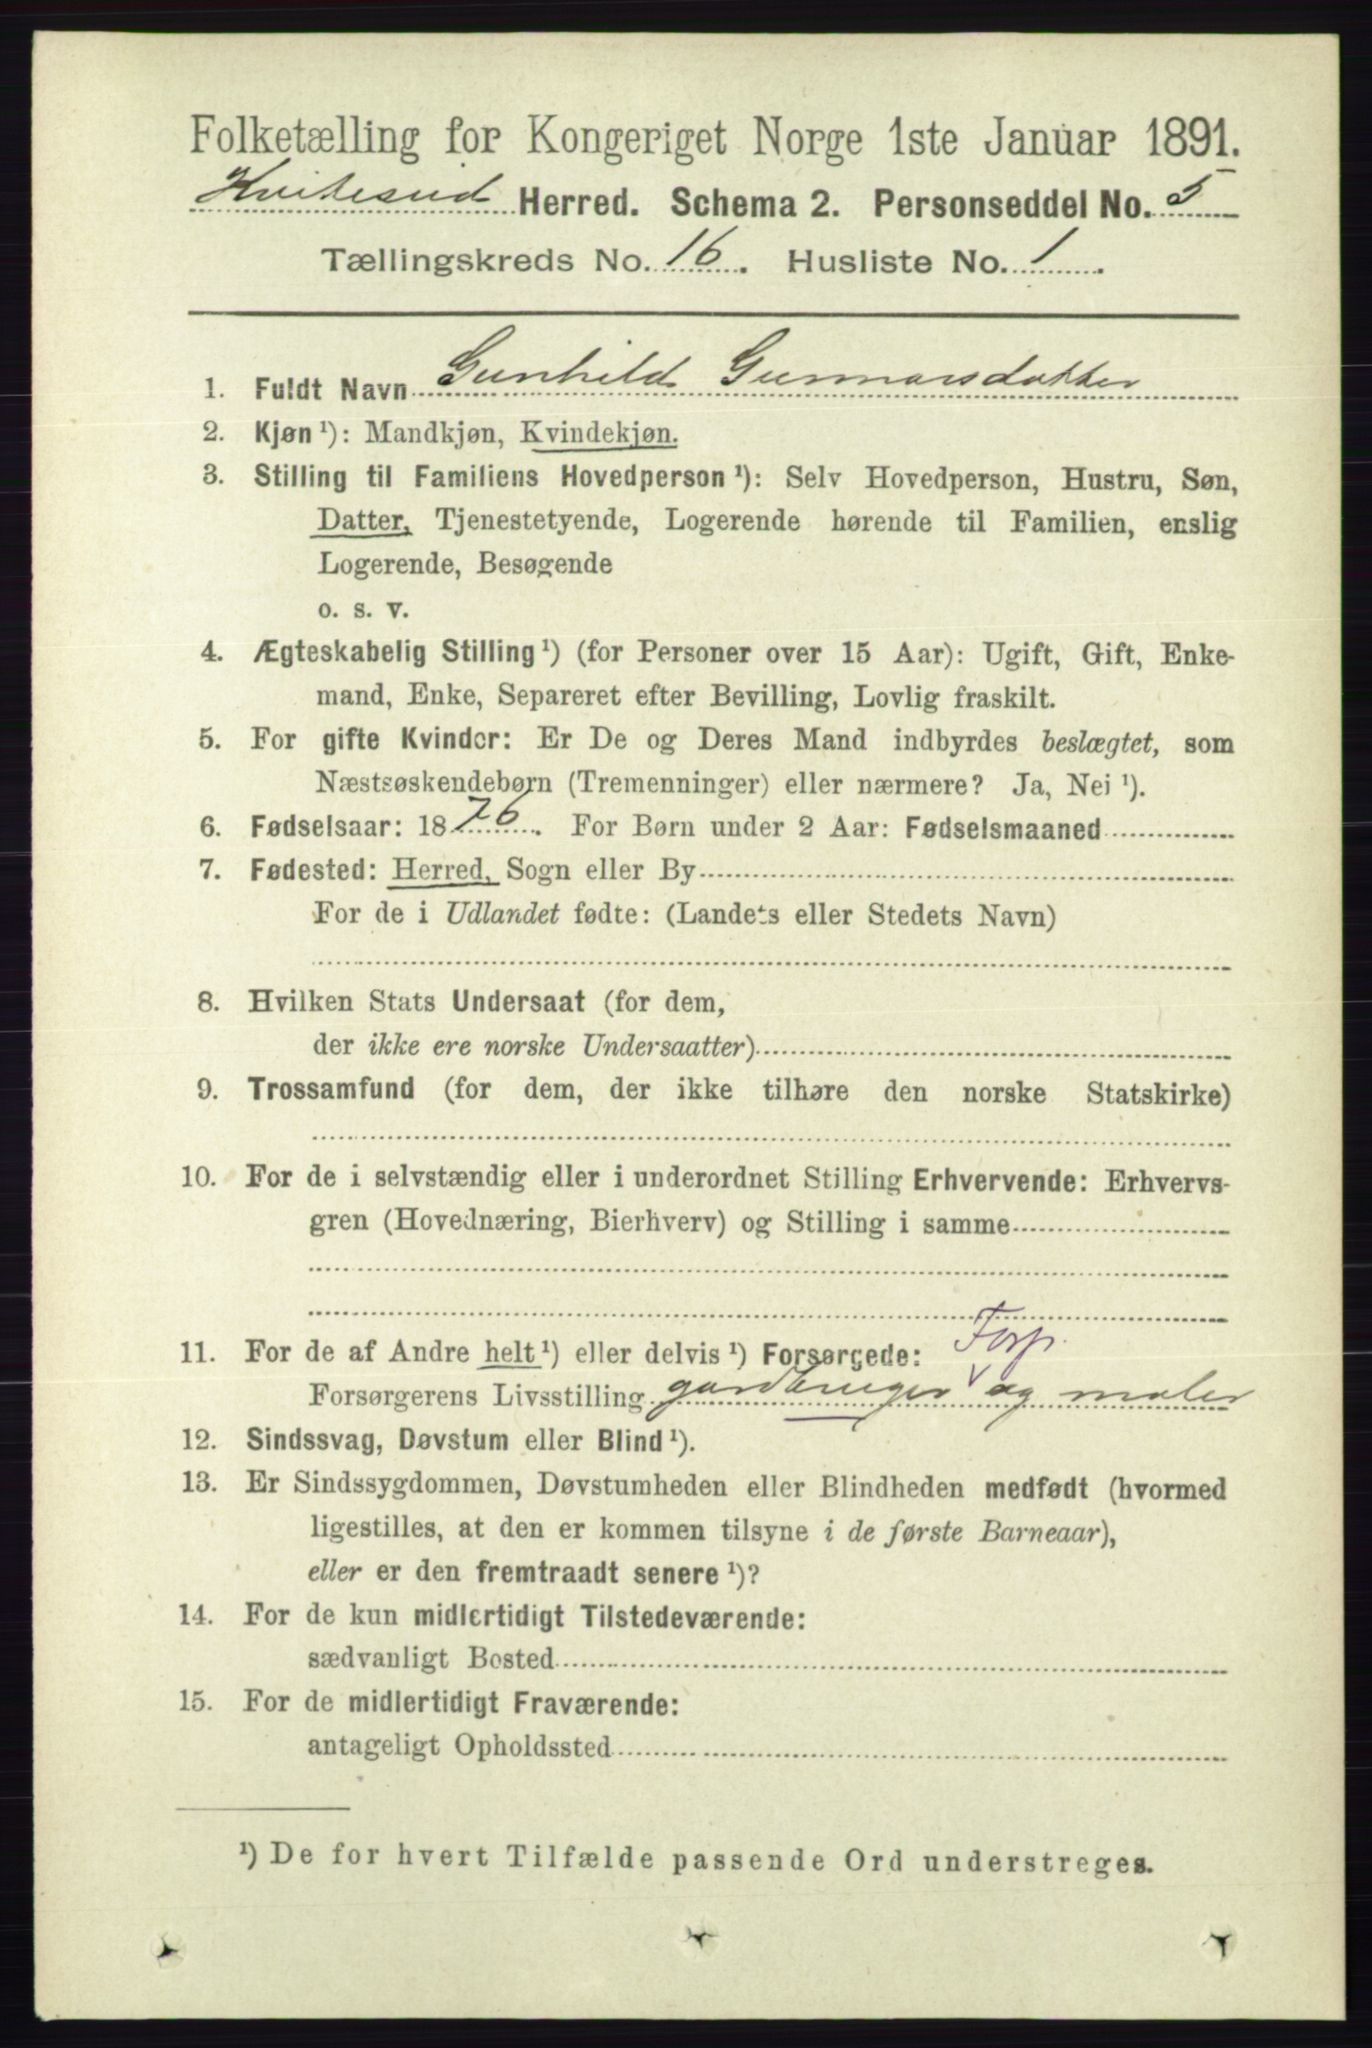 Folketælling for Kongeriget Norge 1ste Januar 1891.
Kviteseid Herred. Schema 2. Personseddel No. 5
Tællingskreds No. 16. Husliste No. 1.
1. Fuldt Navn Gunhild Gunnarsdatter
2. Kjøn ¹): Mandkjøn, Kvindekjøn.
3. Stilling til Familiens Hovedperson ¹): Selv Hovedperson, Hustru, Søn,
Datter, Tjenestetyende, Logerende hørende til Familien, enslig
Logerende, Besøgende
o. s. v.
4. Ægteskabelig Stilling ¹) (for Personer over 15 Aar): Ugift, Gift, Enke-
mand, Enke, Separeret efter Bevilling, Lovlig fraskilt.
5. For gifte Kvinder: Er De og Deres Mand indbyrdes beslægtet, som
Næstsøskendebørn (Tremenninger) eller nærmere? Ja, Nei ¹).
6. Fødselsaar: 1876. For Børn under 2 Aar: Fødselsmaaned
7. Fødested: Herred, Sogn eller By
For de i Udlandet fødte: (Landets eller Stedets Navn)
8. Hvilken Stats Undersaat (for dem,
der ikke ere norske Undersaatter)
9. Trossamfund (for dem, der ikke tilhøre den norske Statskirke)
10. For de i selvstændig eller i underordnet Stilling Erhvervende: Erhvervs-
gren (Hovednæring, Bierhverv) og Stilling i samme
11. For de af Andre helt ¹) eller delvis ¹) Forsørgede: Forp.
Forsørgerens Livsstilling gardbruger og maler
12. Sindssvag, Døvstum eller Blind ¹).
13. Er Sindssygdommen, Døvstumheden eller Blindheden medfødt (hvormed
ligestilles, at den er kommen tilsyne i de første Barneaar),
eller er den fremtraadt senere ¹)?
14. For de kun midlertidigt Tilstedeværende:
sædvanligt Bosted
15. For de midlertidigt Fraværende:
antageligt Opholdssted
¹) De for hvert Tilfælde passende Ord understreges.